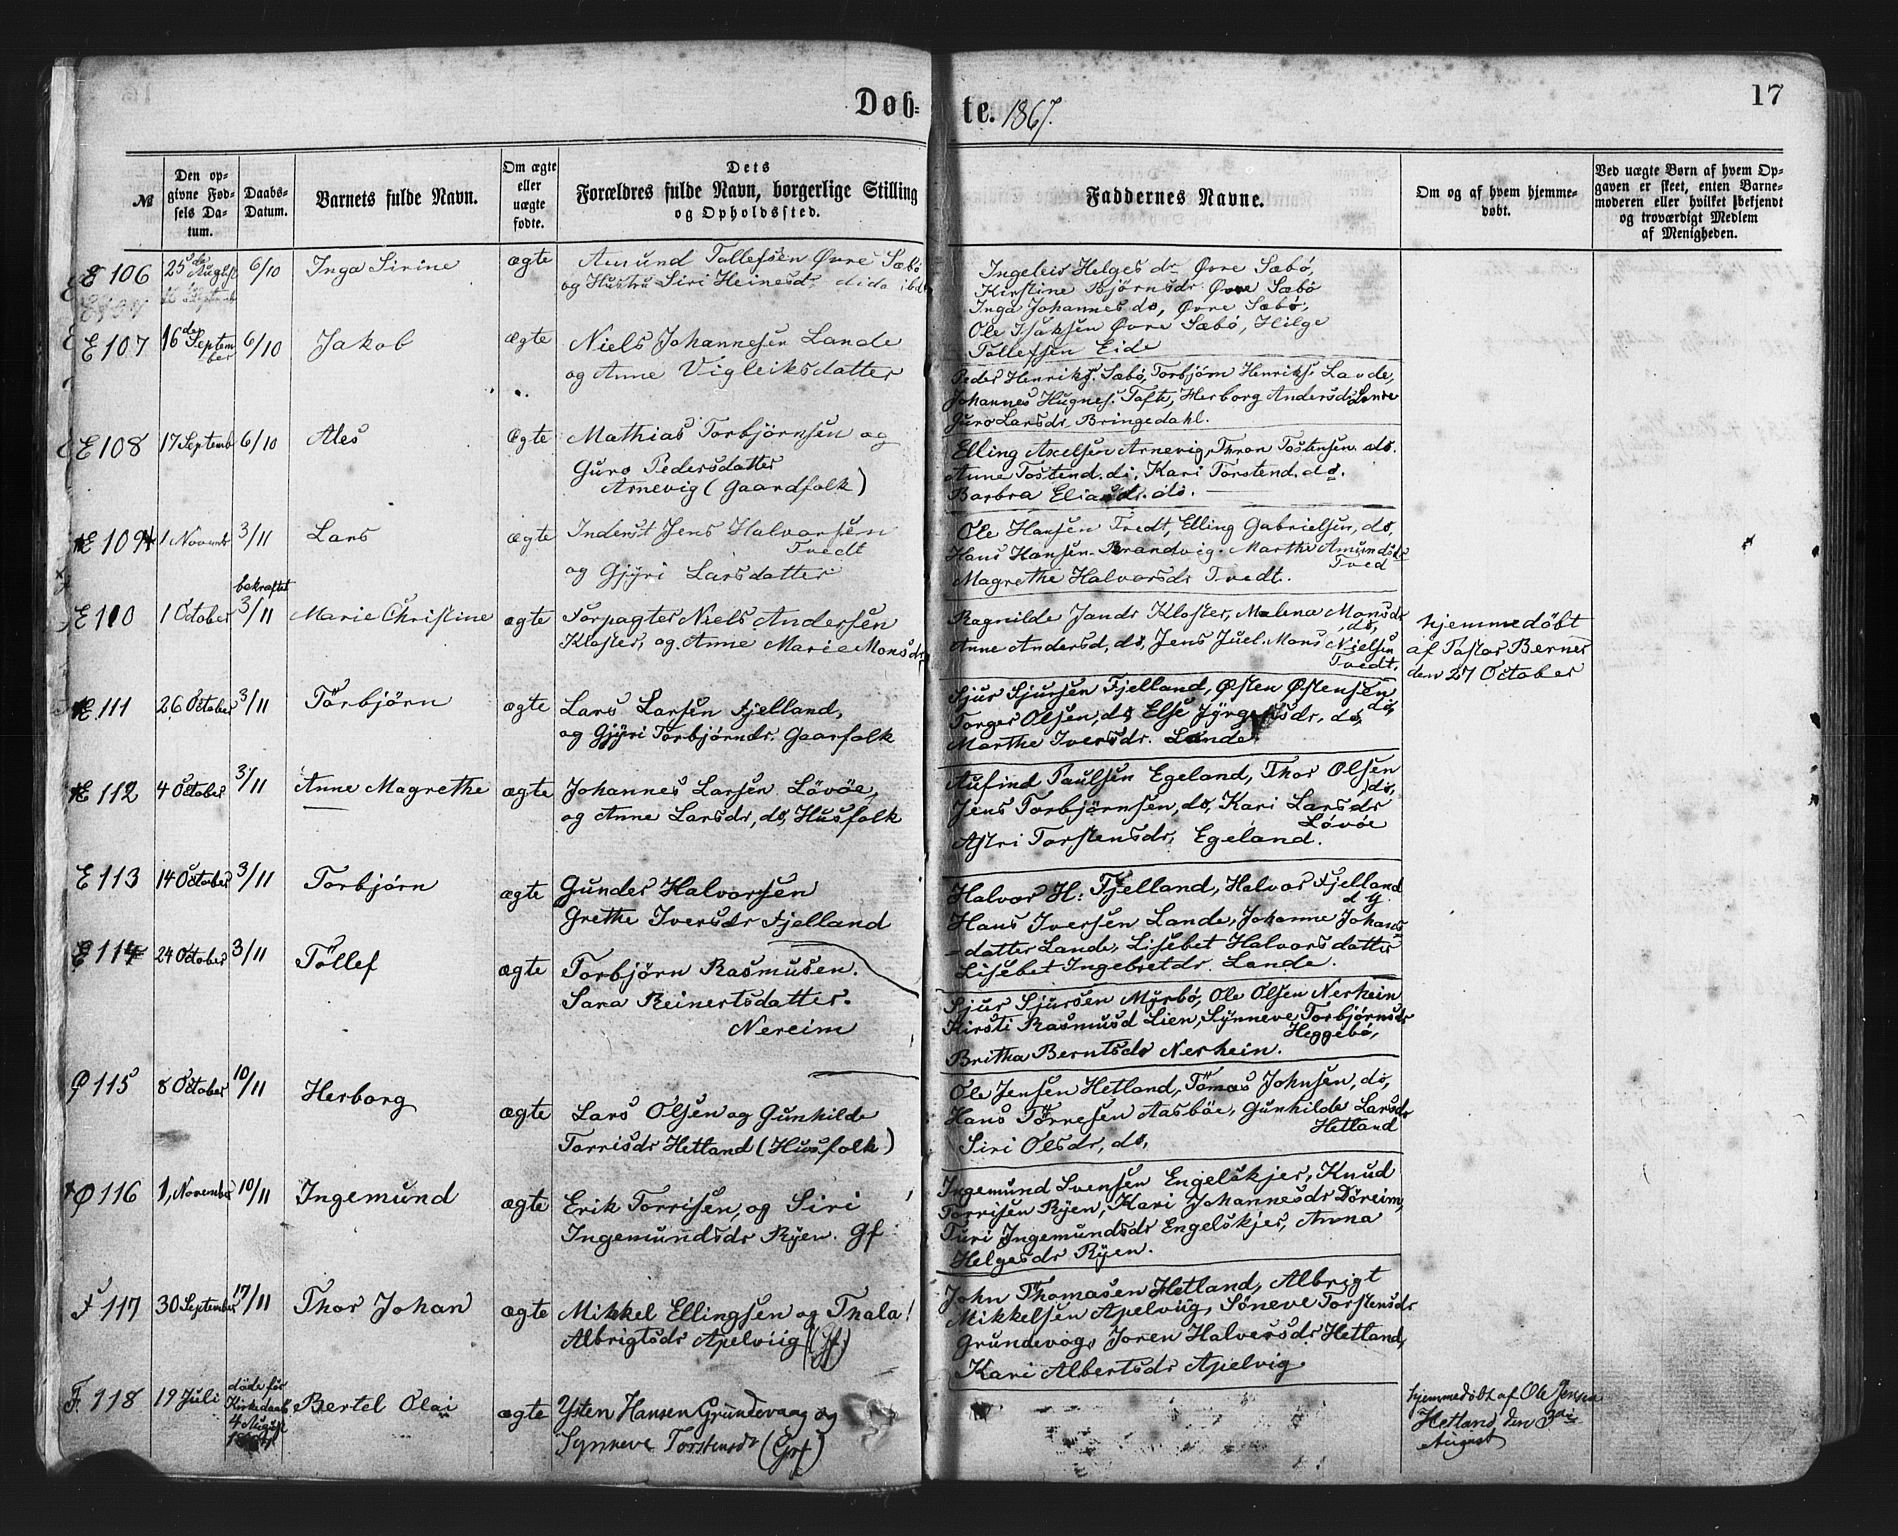 Døb-te. 1867.
17
№
Den op-
givne Fød-
sels Da-
tum.
Daabs-
Datum.
Barnets fulde Navn.
Om ægte
eller
uægte
fødte.
Dets
Forældres fulde Navn, borgerlige Stilling
og Opholdssted.
Faddernes Navne.
Om og af hvem hjemme-
døbt.
Ved uægte Børn af hvem Op-
gaven er skeet, enten Barne-
moderen eller hvilket bekjendt
og troværdigt Medlem
af Menigheden.
E 106 25de August 6/10 Inga Sirine ægte
Amund Tollefsen Øvre Sæbø
og Hustru Siri Heinesdr dido ibid
Ingeleiv Helgesdr Øvre Sæbø,
Kirstine Bjørnsdr Øvre Sæbø
Inga Johannesds, Øvre Sæbø,
Ole Isaksen Øvre Sæbø, Helge
Tollefsen Eide
E 107 16de September 6/10 Jakob ægte
Niels Johannesen Lande
og Anne Vigleiksdatter
Peder Henriks. Sæbø, Torbjørn Henriks. Lande,
Johannes Hugnes. Tofte, Herborg Andersdr Lande
Guro Larsdr Bringedahl.
E 108 17 Septemb 6/10 Ales Ægte
Mathias Torbjørnsen og
Guro Pedersdatter
Arnevig (Gaardfolk)
Elling Axelsen Arnevig, Thron Tostensen do.
Anne Tostend. di, Kari Torstend. do.
Barbra Eliasdr. do.
E 109 1 Novemb 3/11 Lars ægte
Inderst Jens Halvorsen
Tvedt
og Gjyri Larsdatter
Ole Hansen Tvedt, Elling Gabrielsen, do,
Hans Hansen Brandvig. Marthe Amundsdr
Tved
Magrethe Halvorsdr Tvedt.
bekræftet
E 110 1 October 3/11 Marie Christine ægte
Forpagter Niels Andersen
Kloster, og Anne Marie Monsdr
Ragnilde Jandr Kloster, Malena Monsdr
do,
Anne Andersd, do, Jens Juel. Mons Nielsen
Tvedt.
hjemmedøbt
af Pastor Berner
den 27 October
E 111 26 October 3/11 Torbjørn ægte
Lars Larsen Fjelland,
og Gjyri Torbjørndr. Gaarfolk
Sjur Sjursen Fjelland, Østen Østensen
do,
Torger Olsen, do, Else Jyrgensdr, do,
Marthe Iversdr. Lande.
E 112 4 October 3/11 Anne Magrethe ægte
Johannes Larsen Løvøe,
og Anne Larsdr, do, Husfolk
Aufind Paulsen Egeland, Thor Olsen
do,
Jens Torbjørnsen, do, Kari Larsdr
Løvøe
Astri Torstensdr, Egeland.
E 113 14 October 3/11 Torbjørn ægte
Gunder Halvorsen
Grethe Iversdr Fjelland
Halvor H: Fjelland, Halvor Fjelland
d y.
Hans Iversen Lande, Johanne Johans-
-datter Lande, Lisebet Halvorsdatter
Lisebet Ingebretdr. Lande.
E 114 24 October 3/11 Tollef ægte
Torbjørn Rasmusen.
Sara Reinertsdatter.
Nereim
Sjur Sjursen Myrbø, Ole Olsen Nerhein
Kirsti Rasmusd Lien, Synneve Torbjørnsdr
Heggebø,
Britha Berntsdr Nerhein.
Ø 115 8 October 10/11 Herborg ægte
Lars Olsen og Gunhilde
Torrisdr Hetland (Husfolk)
Ole Jensen Hetland, Tomas Johnsen, do,
Hans Tørresen Aasbøe, Gunhilde Larsdr
Hetland
Siri Olsdr, do,
Ø 116 1, November 10/11 Ingemund ægte
Erik Torrisen, og Siri
Ingemundsdr Ryen. Gf
Ingemund Svensen Engelskjer, Knud
Torrisen Ryen, Kari Johannesdr Døreim,
Turi Ingemundsdr Engelskjer, Anna
Helgesdr Ryen.
F 117 30 September 17/11 Thor Johan ægte
Mikkel Ellingsen og Thala!
Albrigtsdr Apelviig (Gf)
John Thomasen Hetland, Albrigt
Mikkelsen Apelviig, Søneve Torstensdr
Grundevog, Joren Halversdr Hetland,
Kari Albertsdr Apelvig
F. 118 19 Juli døde før
Kirkedaab
4 August
Bertel Olai ægte
Ysten Hansen Grundevaag og
Synneve Torstensdr (Grf)
hjemmedøbt af Ole Jensen
Hetland den 3die
August